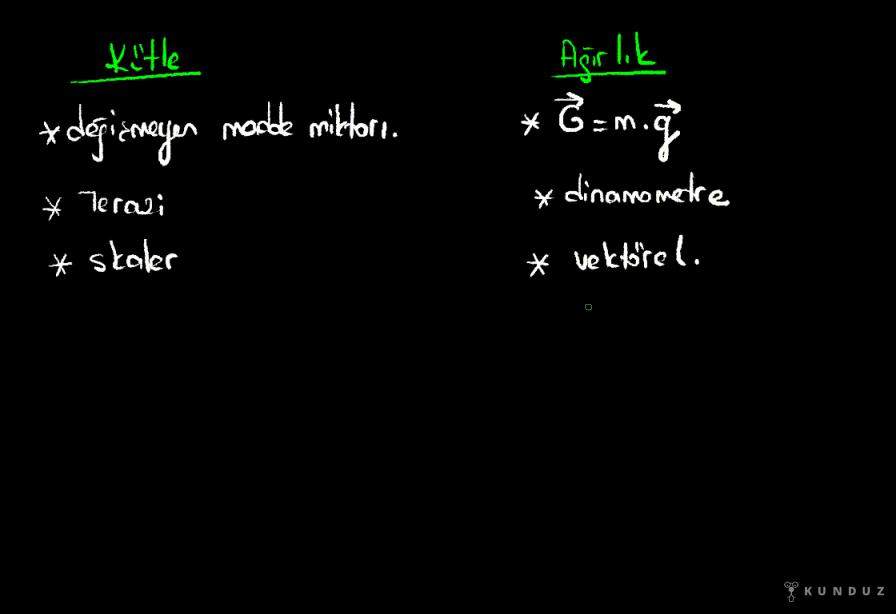 Kütle
* değişmeyen madde miktarı.
* Terazi
* skaler
Ağırlık
* G = m.g
* dinamometre
* vektörel.
KUNDUZ